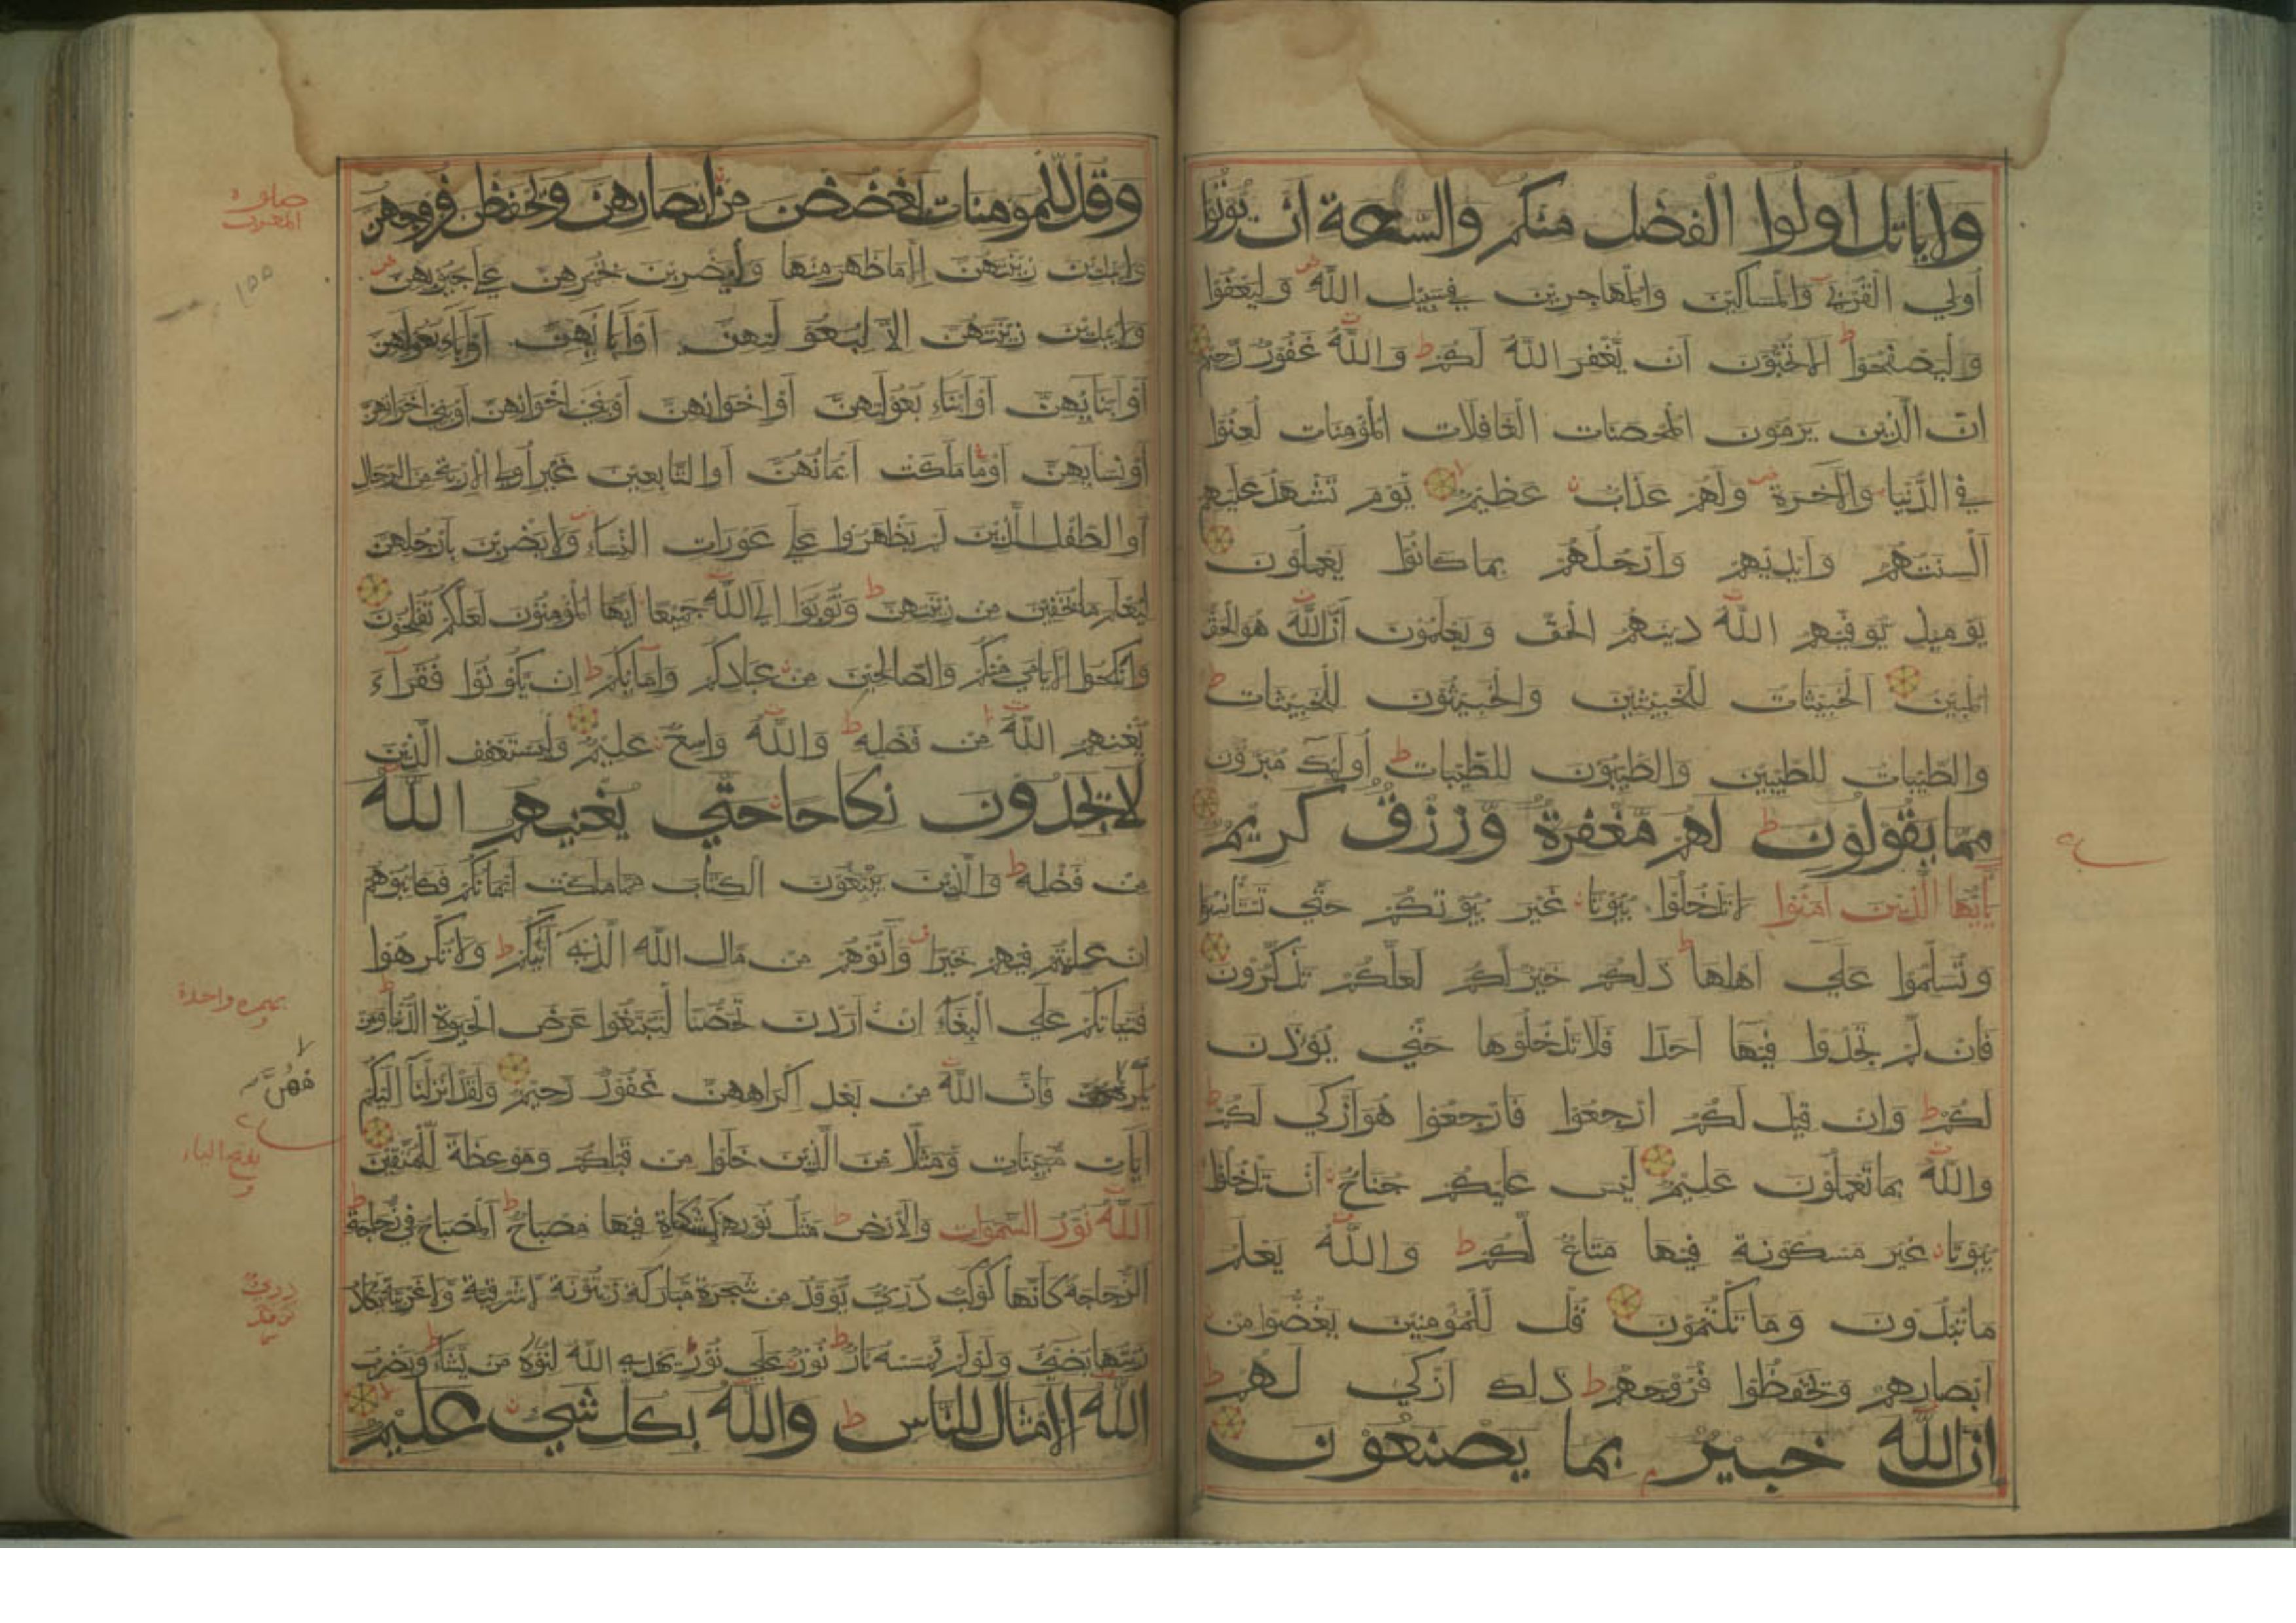 ولا ياتل اولوا الفضل منكم والسعة ان يؤتوا
اولي القربى والمساكين والمهاجرين في سبيل الله وليعفوا
وليصفحوا الا تحبون ان يغفر الله لكم والله غفور رحيم
ان الذين يرمون المحصنات الغافلات المؤمنات لعنوا
في الدنيا والآخرة ولهم عذاب عظيم يوم تشهد عليهم
السنتهم وايديهم وارجلهم بما كانوا يعملون
يوميذ يوفيهم الله دينهم الحق ويعلمون ان الله هو الحق
المبين الخبيثات للخبيثين والخبيثون للخبيثات
والطيبات للطيبين والطيبون للطيبات اوليك مبرؤن
مما يقولون لهم مغفرة ورزق كريم
يايها الذين آمنوا لا تدخلوا بيوتا غير بيوتكم حتى تستانسوا
وتسلموا على اهلها ذلكم خير لكم لعلكم تذكرون
فان لم تجدوا فيها احدا فلا تدخلوها حتى يؤذن
لكم وان قيل لكم ارجعوا فارجعوا هو ازكى لكم
والله بما تعملون عليم ليس عليكم جناح ان تدخلوا
بيوتا غير مسكونة فيها متاع لكم والله يعلم
ما تبدون وما تكتمون قل للمؤمنين يغضوا من
ابصارهم ويحفظوا فروجهم ذلك ازكى لهم
ان الله خبير بما يصنعون
وقل للمومنات يغضضن من ابصارهن ويحفظن فروجهن
ولا يبدين زينتهن الا ما ظهر منها وليضربن بخمرهن على جيوبهن
ولا يبدين زينتهن الا لبعولتهن او آبايهن او آباء بعولتهن
او ابنايهن او ابناء بعولتهن او اخوانهن او بني اخوانهن او بني اخواتهن
او نسايهن او ما ملكت ايمانهن او التابعين غير اولي الاربة من الرجال
او الطفل الذين لم يظهروا على عورات النساء ولا يضربن بارجلهن
ليعلم ما يخفين من زينتهن وتوبوا الى الله جميعا ايها المؤمنون لعلكم تفلحون
وانكحوا الايامى منكم والصالحين من عبادكم وامايكم ان يكونوا فقراء
يغنهم الله من فضله والله واسع عليم وليستعفف الذين
لا يجدون نكاحا حتى يغنيهم الله
من فضله والذين يبتغون الكتاب مما ملكت ايمانكم فكاتبوهم
ان علمتم فيهم خيرا وآتوهم من مال الله الذي آتيكم ولا تكرهوا
فتياتكم على البغاء ان اردن تحصنا لتبتغوا عرض الحيوة الدنيا ومن
يكرههن فان الله من بعد اكراههن غفور رحيم ولقد انزلنا اليكم
آيات مبينات ومثلا من الذين خلوا من قبلكم وموعظة للمتقين
الله نور السموات والارض مثل نوره كمشكاة فيها مصباح المصباح في زجاجة
الزجاجة كانها كوكب دري يوقد من شجرة مباركة زيتونة لا شرقية ولا غربية يكاد
زيتها يضيئ ولو لم تمسسه نار نور على نور يهدي الله لنوره من يشاء ويضرب
الله الامثال للناس والله بكل شيئ عليم
صلوة
المغرب
١٥٥
بهمزه واحدة
ههن
بفتح الياء
دري
توقد